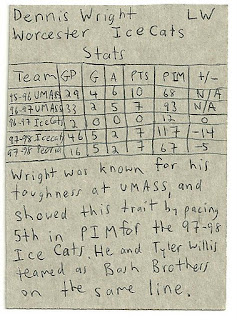 Dennis Wright LW
Worcester IceCats
Stats
Team GP G A PTS PIM +/-
95-96 UMAS 29 4 6 10 68 N/A
96-97 UMASS 33 2 5 7 93 N/A
96-97 IceCat 2 0 0 0 12 0
97-98 Icecat 46 5 2 7 117 -14
97-98 Peoria 16 2 5 7 67 -5
Wright was known for his
toughness at UMASS, and
showed this trait by pacing
5th in PIM for the 97-98
Ice Cats. He and Tyler Willis
teamed as Bash Brothers
on the same line.